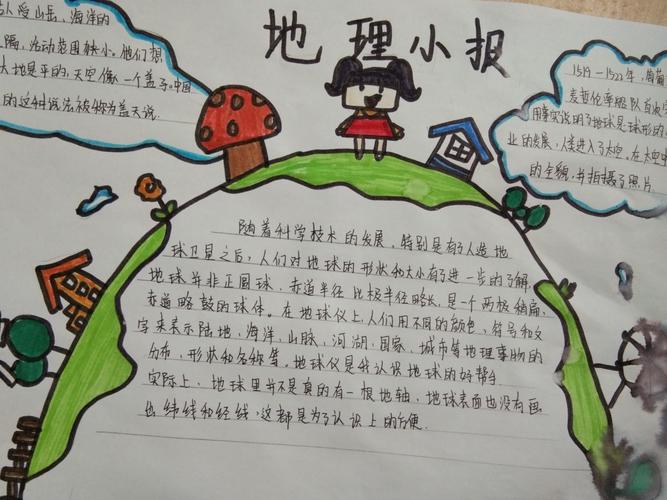 地理小报
古人受山岳、海洋的
阻隔,活动范围狭小。他们想
大地是平的,天空像一个盖子。中国
的这种说法被称为盖天说.
1519—1522年,葡萄
麦哲伦率船队首次
用事实说明了地球是球形的
业的发展,人类进入了太空。在太空
的全貌,并拍摄了照片
随着科学技术的发展,特别是有了人造地
球卫星之后,人们对地球的形状和大小有了进一步的了解.
地球并非正圆球,赤道半径比极半径略长,是一个两极稍扁、
赤道略鼓的球体。在地球仪上,人们用不同的颜色、符号和文
字来表示陆地、海洋、山脉、河湖、国家、城市等地理事物的
分布,形状和名称等。地球仪是我认识地球的好帮手
实际上,地球里并不是真的有一根地轴,地球表面也没有画
出纬线和经线,这都是为了认识上的方便.